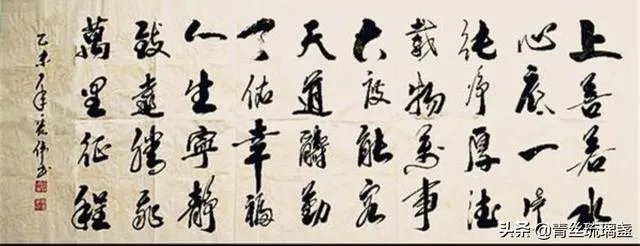 上善若水
心底一片
纯净厚德
載物萬事
大度能容
天道酬勤
天佑幸福
人生寧靜
致遠騰飛
萬里征程
乙未年
头条 @青丝琉璃盏